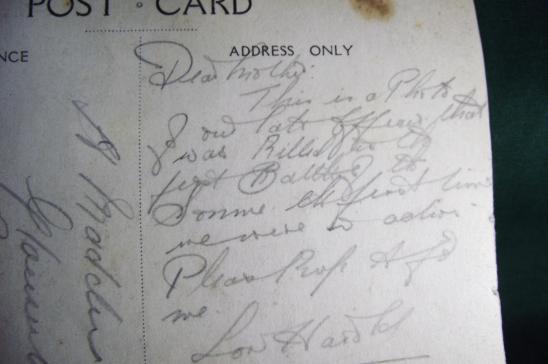 POST CARD
NCE
ADDRESS ONLY
Dear Mother.
This is a Photo
of our late Officer that
was Killed in the
first Battle of the
Somme. the first time
we were in action.
Please Keep it for
me.
Love Harold